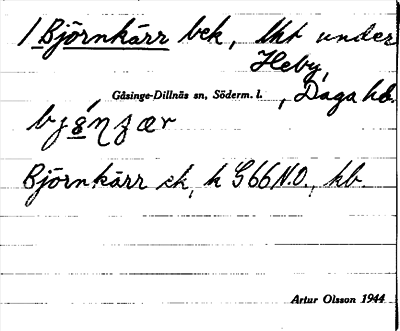 1 Björnkärr bek, lht under
Heby,
Gåsinge-Dillnäs sn, Söderm. l. , Daga hd.
Björnkärr ek, h G66 N.O., kb.
Artur Olsson 1944